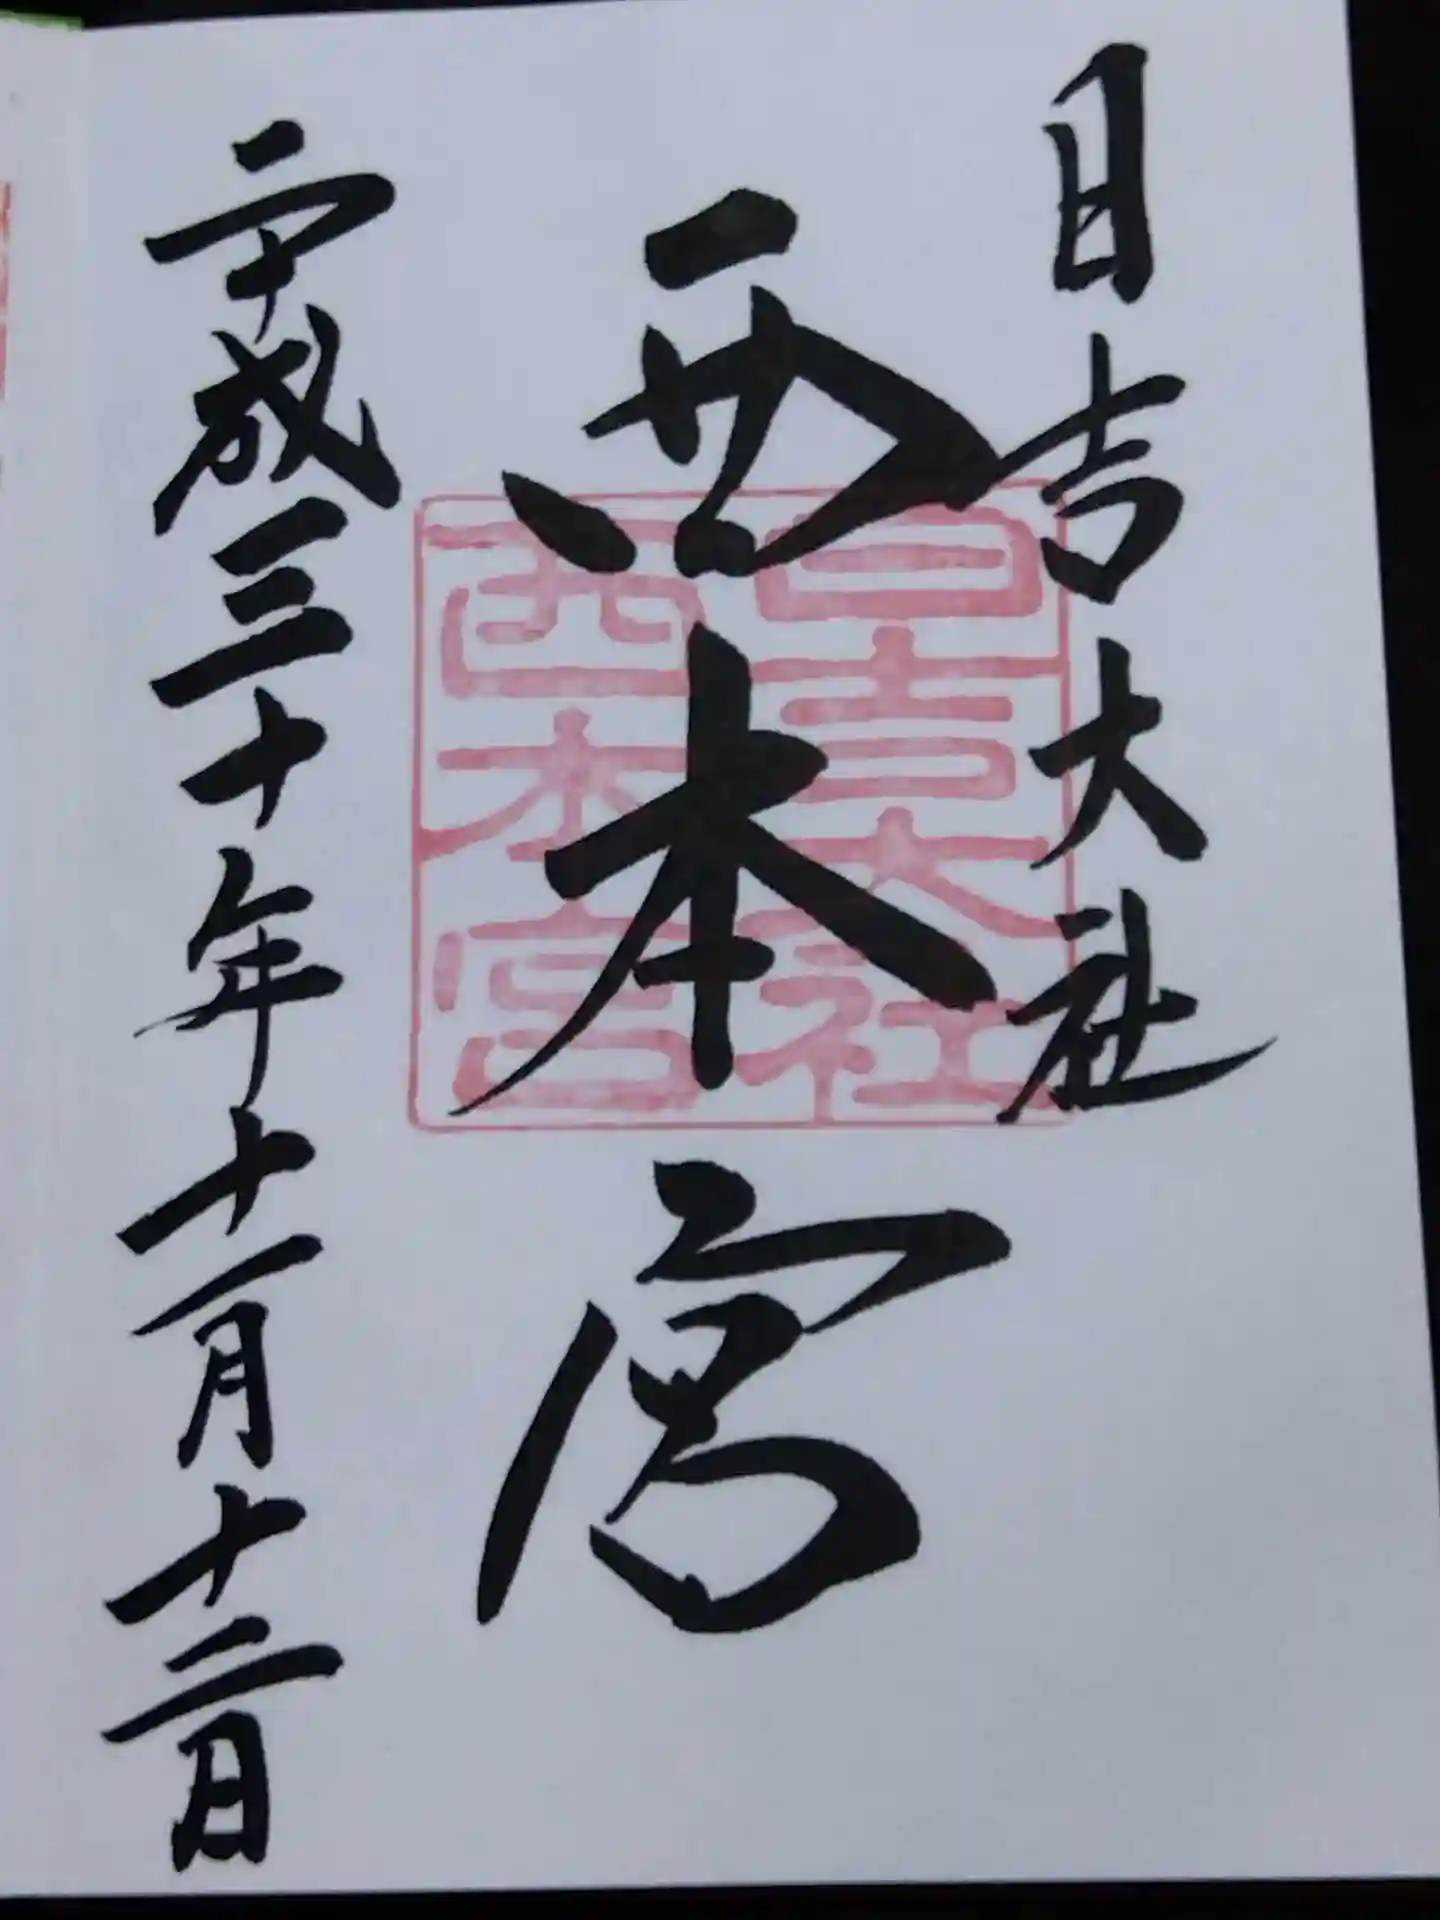 日吉大社
西本宮
平成三十年十一月十二日
日吉大社
西本宮